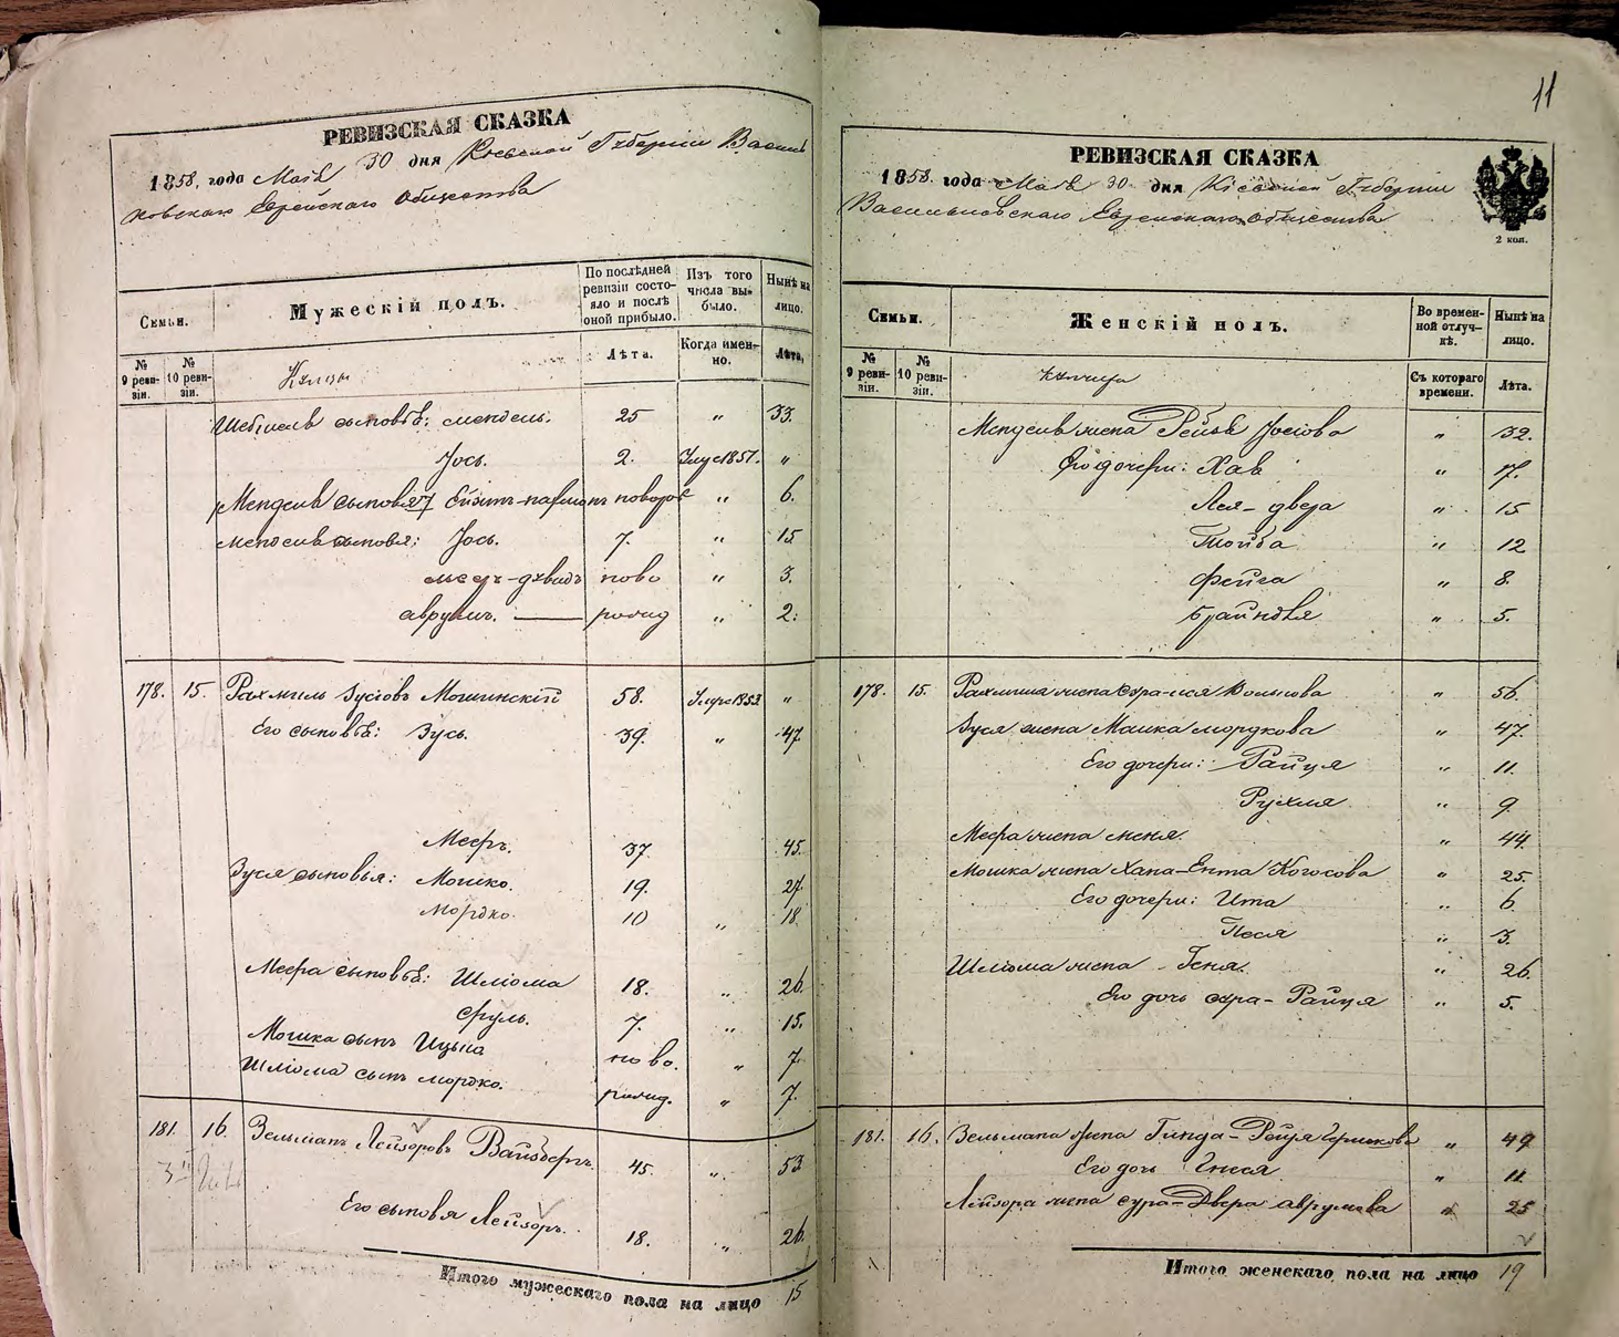 РЕВИЗСКАЯ СКАЗКА
1858. года Маія 30 дня Кіевской Губерніи Василь
ковскаго Еврейскаго Общества
Семьи.
Мужескій полъ.
По послѣдней ревизіи состояло и послѣ оной прибыло.
Изъ того числа выбыло.
Нынѣ на лицо.
№ 9 ревизіи.
№ 10 ревизіи.
Лѣта.
Когда именно.
Лѣта.
сыновья: Мендель. 25 „ 33.
Іось. 2. 1851. „
Менделя сыновья „ 6.
Менделя сыновья: Іось. 7. „ 15
Меер-Дувидъ ново „ 3.
Аврумъ. — рожд „ 2.
178. 15. Рахмиль Зусіовъ Мошинскій 58. 1853 „
Его сыновья: Зусь. 39. „ 47.
Мееръ. 37 45.
Зуся сыновья: Мошко. 19. 27.
Мордко. 10 „ 18
Меера сыновья: Шліома 18. „ 26.
Сруль. 7. „ 15.
Мошка сынъ Ицына ново. „ 7.
Шліома сынъ Мордко. рожд. „ 7.
181. 16. Зельманъ Лейзоровъ Вайсбергъ. 45. „ 53
Его сыновья Лейзоръ. 18. „ 26.
Итого мужескаго пола на лицо 15
11
РЕВИЗСКАЯ СКАЗКА
1858. года Маія 30 дня Кіевской Губерніи
Васильковскаго Еврейскаго Общества
2 коп.
Семьи.
Женскій полъ.
Во временной отлучкѣ.
Нынѣ на лицо.
№ 9 ревизіи.
№ 10 ревизіи.
Съ котораго времени.
Лѣта.
Менделя жена Рейзя Іосіова „ 32.
Его дочери: Хая „ 17.
Лея-двера „ 15
Тойба „ 12
Фейга „ 8.
Брайндля „ 5.
178. 15. Рахмиля жена Сура-лея „ 56.
Зуся жена Машка Мордкова „ 47.
Его дочери: Райця „ 11.
Рухля „ 9.
Меера жена Меня. „ 44.
Мошка жена Хана-Ента „ 25.
Его дочери: Ита „ 6
Песя „ 3.
Шліома жена - Геня. „ 26.
Его дочь Сура-Райця „ 5.
181. 16. Зельмана жена Гинда-Рейзя Гершкова „ 49
Его дочь „ 11
Лейзора жена Сура-Двера Аврумова „ 25
Итого женскаго пола на лицо 19